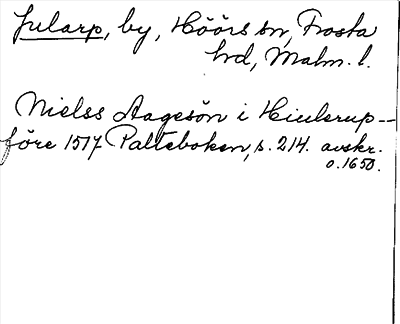 Jularp, by, Höörs sn, Frosta
hd, Malm. l.
Nielss Aagesön i Hiulerup--
före 1517 Palteboken, s. 214. avskr.
o. 1650.